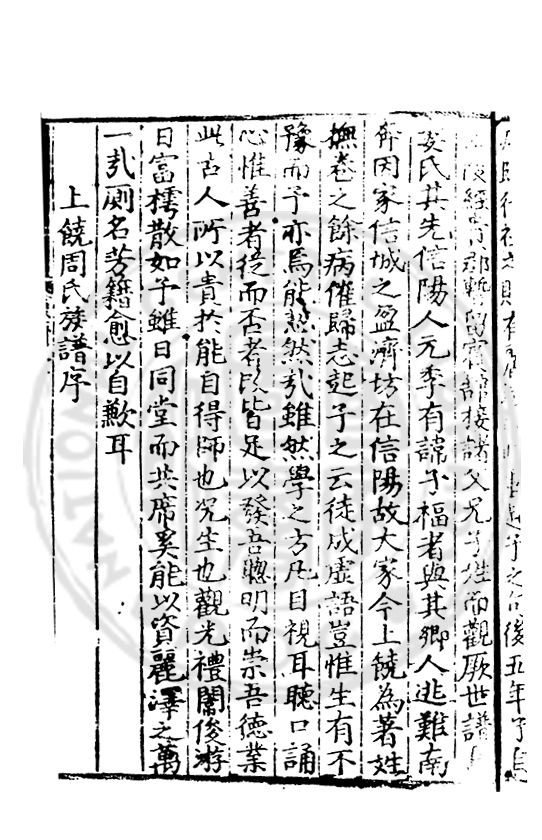 之句後五年予
經郡暫留賓接諸父兄子姪而觀厥世譜
婁氏其先信陽人元季有諱子福者與其鄉人逃難南
奔因家信城之盈濟坊在信陽故大家今上饒為著姓
撫卷之餘病催歸志起予之云徒成虛語豈惟生有不
豫而予亦焉能恝然㢤雖然學之方凡目視耳聽口誦
心惟善者從而否者改皆足以發吾聰明而崇吾德業
此古人所以貴於能自得師也况生也觀光禮闈俊游
日富樗散如予雖日同堂而共席奚能以資麗澤之萬
一㢤厠名芳籍愈以自歉耳
上饒周氏族譜序